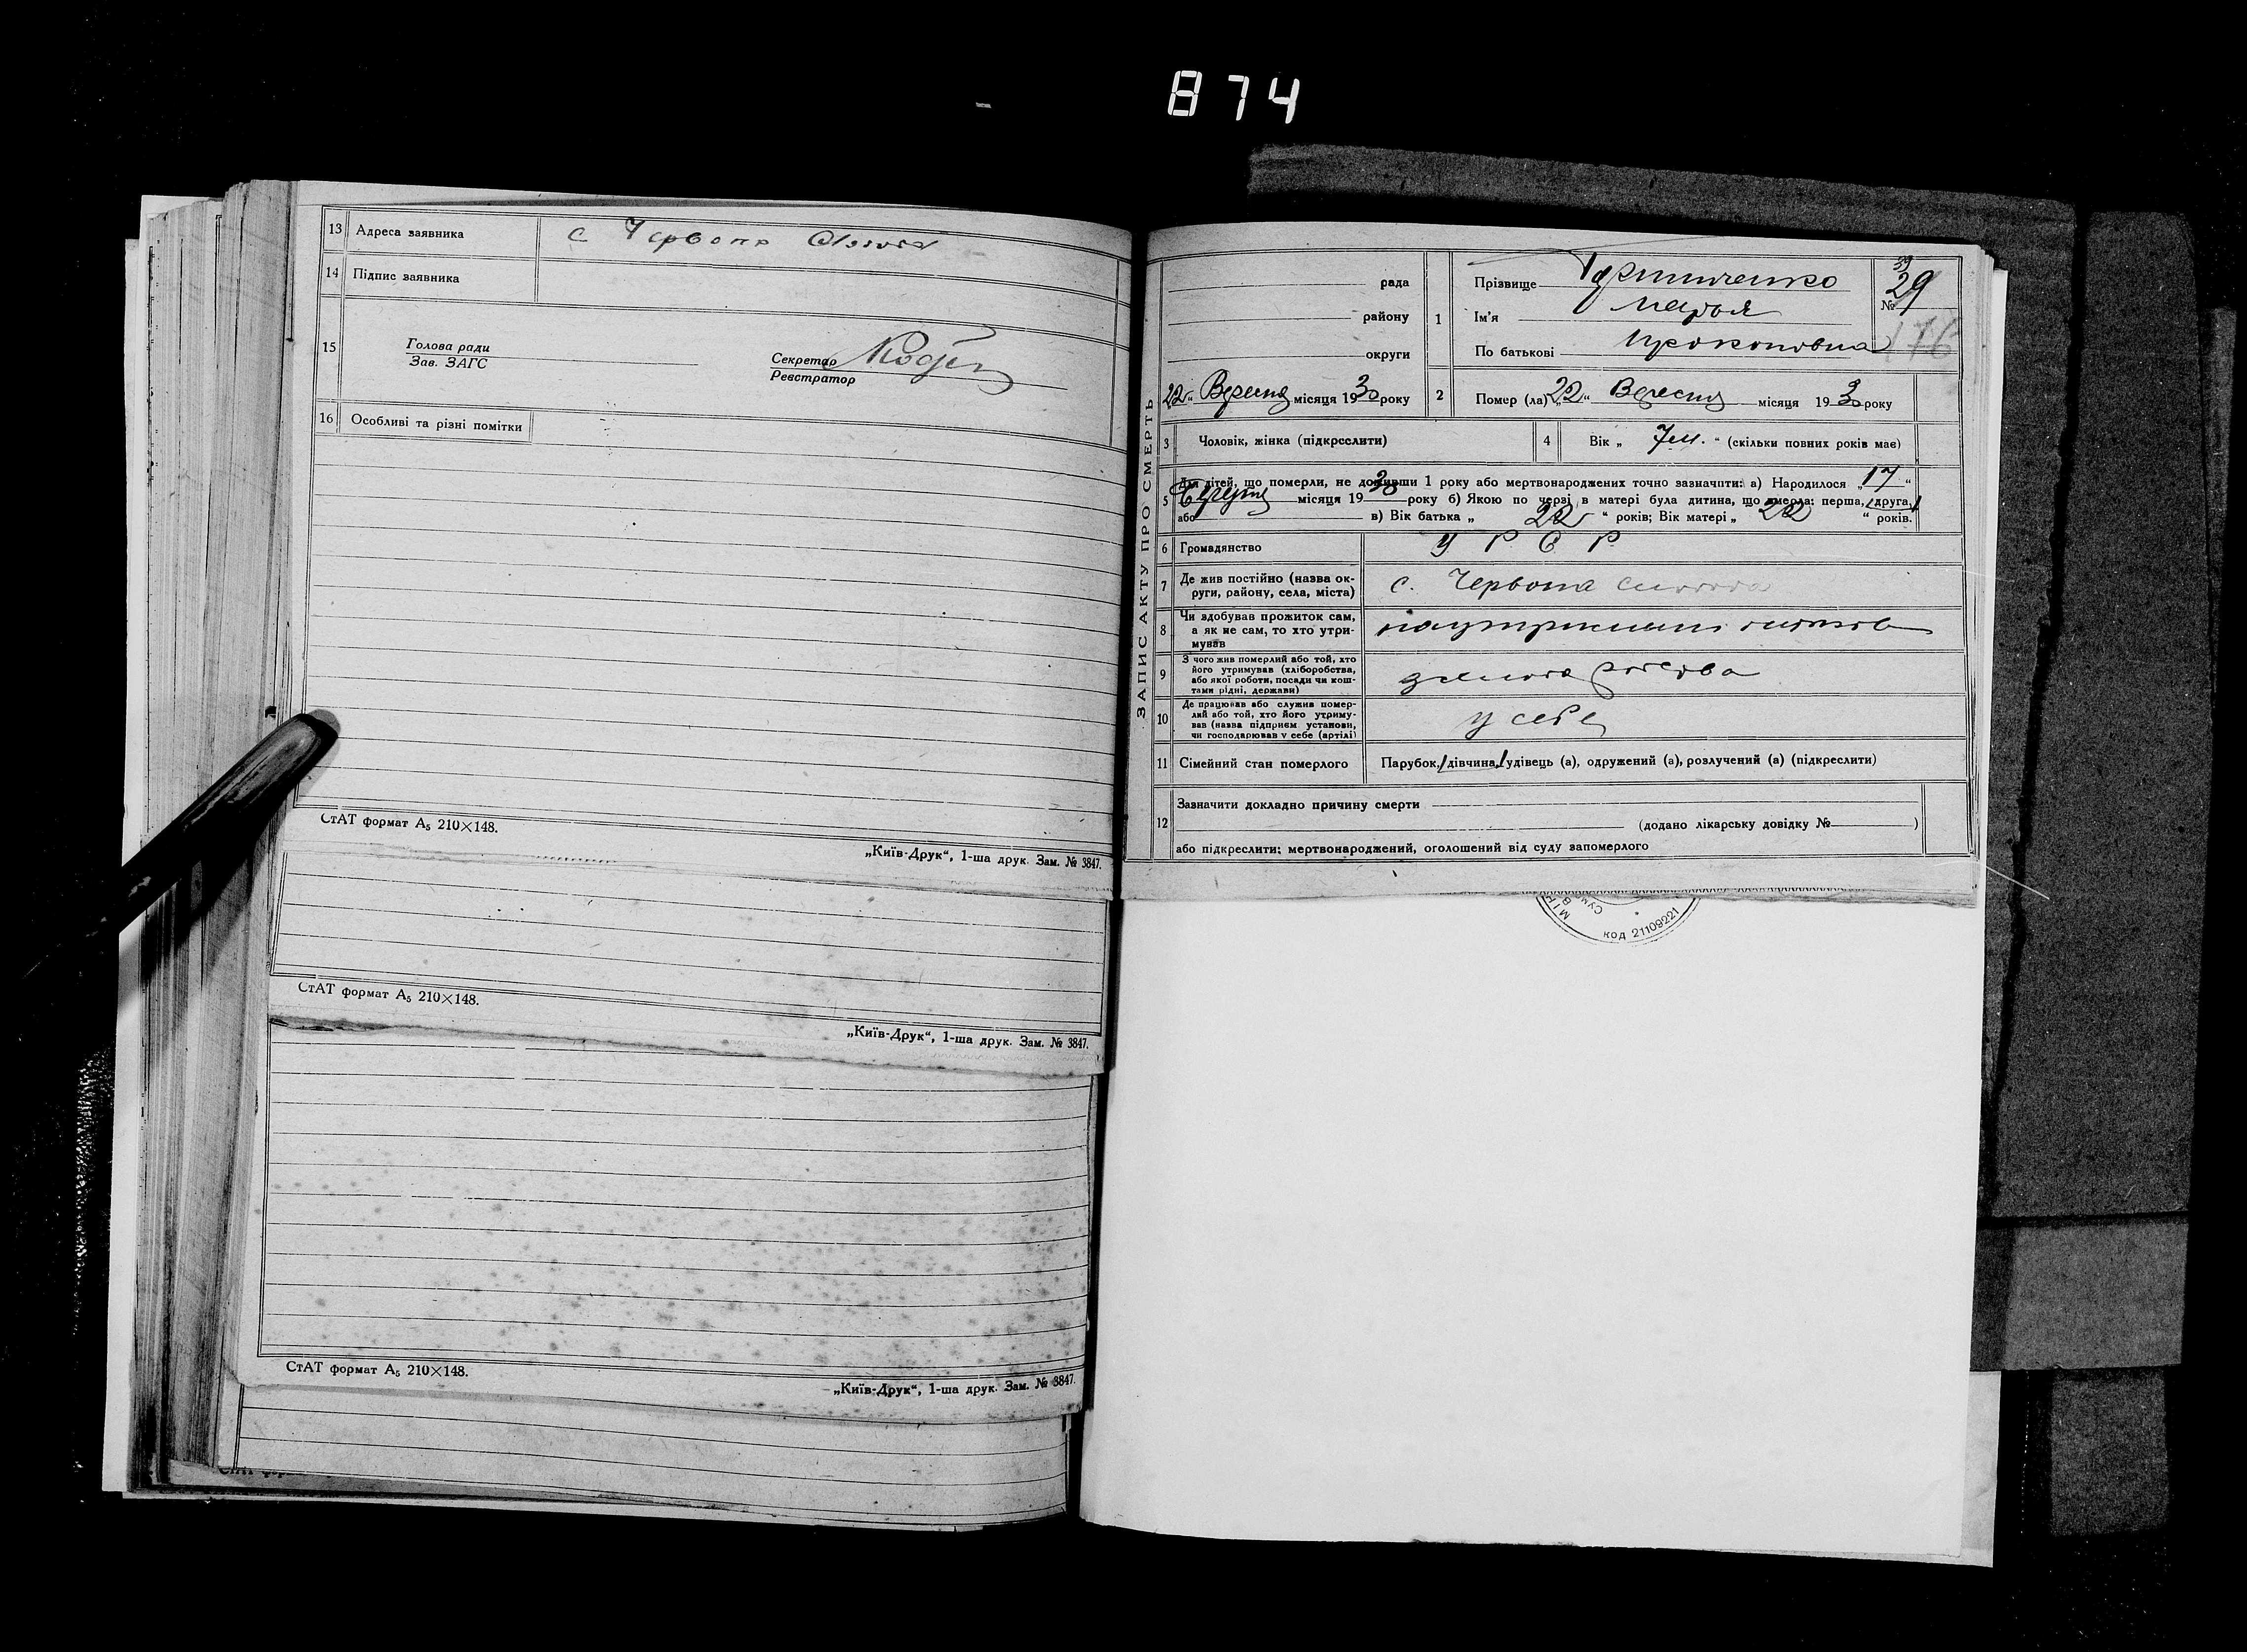 874
13 Адреса заявника с Червона
14 Підпис заявника
15 Голова ради
Зав. ЗАГС
Секретар
Реєстратор
16 Особливі та різні помітки
СтАТ формат А₅ 210×148.
„Київ-Друк“, 1-ша друк. Зам. № 3847.
СтАТ формат А₅ 210×148.
„Київ-Друк“, 1-ша друк. Зам. № 3847.
СтАТ формат А₅ 210×148.
„Київ-Друк“, 1-ша друк. Зам. № 3847.
ЗАПИС АКТУ ПРО СМЕРТЬ
рада
району
округи
22 “ місяця 1930 року
1 Прізвище
Ім'я Марья
По батькові Прокоповна
39
№ 29
176
2 Помер (ла) „22“ місяця 1930 року
3 Чоловік, жінка (підкреслити)
4 Вік „ 7 м. “ (скільки повних років має)
5 Для дітей, що померли, не доживши 1 року або мертвонароджених точно зазначити: а) Народилося „17“
місяця 1930 року б) Якою по черзі в матері була дитина, що вмерла: перша, друга,
або в) Вік батька „ 22 “ років; Вік матері „ 22 “ років.
6 Громадянство У Р С Р
7 Де жив постійно (назва округи, району, села, міста) с. Червона
8 Чи здобував прожиток сам,
а як не сам, то хто утри-
мував
9 З чого жив померлий або той, хто
його утримував (хліборобства,
або якої роботи, посади чи кош-
тами рідні, держави)
10 Де працював або служив помер-
лий або той, хто його утриму-
вав (назва підприєм установи,
чи господарював у себе (артілі)
у себе
11 Сімейний стан померлого Парубок, дівчина, удівець (а), одружений (а), розлучений (а) (підкреслити)
12 Зазначити докладно причину смерти
(додано лікарську довідку № )
або підкреслити: мертвонароджений, оголошений від суду запомерлого
код 21109221